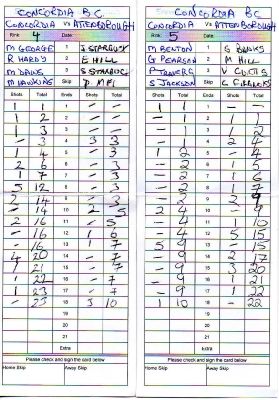 CONCORDIA B C
CONCORDIA vs ATTENBOROUGH
Rink 4 Date
M GEORGE 1 J STARBUCK
R HARDY 2 E HILL
M DAWS 3 S STARBUCK
M HAWKINS Skip
Shots Total Ends Shots Total
1 1 1 - -
1 2 2 - -
1 3 3 - -
- 3 4 3 3
1 4 5 - 3
2 6 6 - 3
1 7 7 - 3
5 12 8 - 3
2 14 9 - 3
- 14 10 2 5
2 16 11 - 5
- 16 12 1 6
- 16 13 1 7
4 20 14 - 7
1 21 15 - 7
1 22 16 - 7
1 23 17 - 7
- 23 18 3 10
19
20
21
Extra
Please check and sign the card below
Home Skip Away Skip
CONCORDIA B C
CONCORDIA vs ATTENBOROUGH
Rink 5 Date
M BENTON 1 G BANKS
G PEARSON 2 M HILL
P TOWERS 3
S JACKSON Skip
Shots Total Ends Shots Total
1 1 1 - -
- 1 2 1 1
- 1 3 1 2
- 1 4 2 4
- 1 5 1 5
- 2 6 1 6
- 2 8 1 7
- 2 9 2 9
2 4 10 - 9
- 4 11 1 10
- 4 12 5 15
5 9 13 - 15
- 9 14 2 17
- 9 15 3 20
- 9 16 1 21
- 9 17 1 22
1 10 18 - 22
19
20
21
Extra
Please check and sign the card below
Home Skip Away Skip